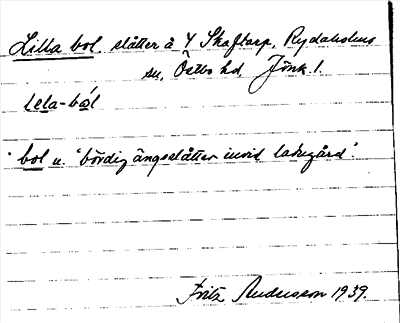 Lilla bol slåtter å Y Skaftarp, Rydaholms
sn, Östbo hd, Jönk. l.
Lela-bol
"bol n. "bördig ängsslåtter invid ladugård".
Fritz Andersson 1939.